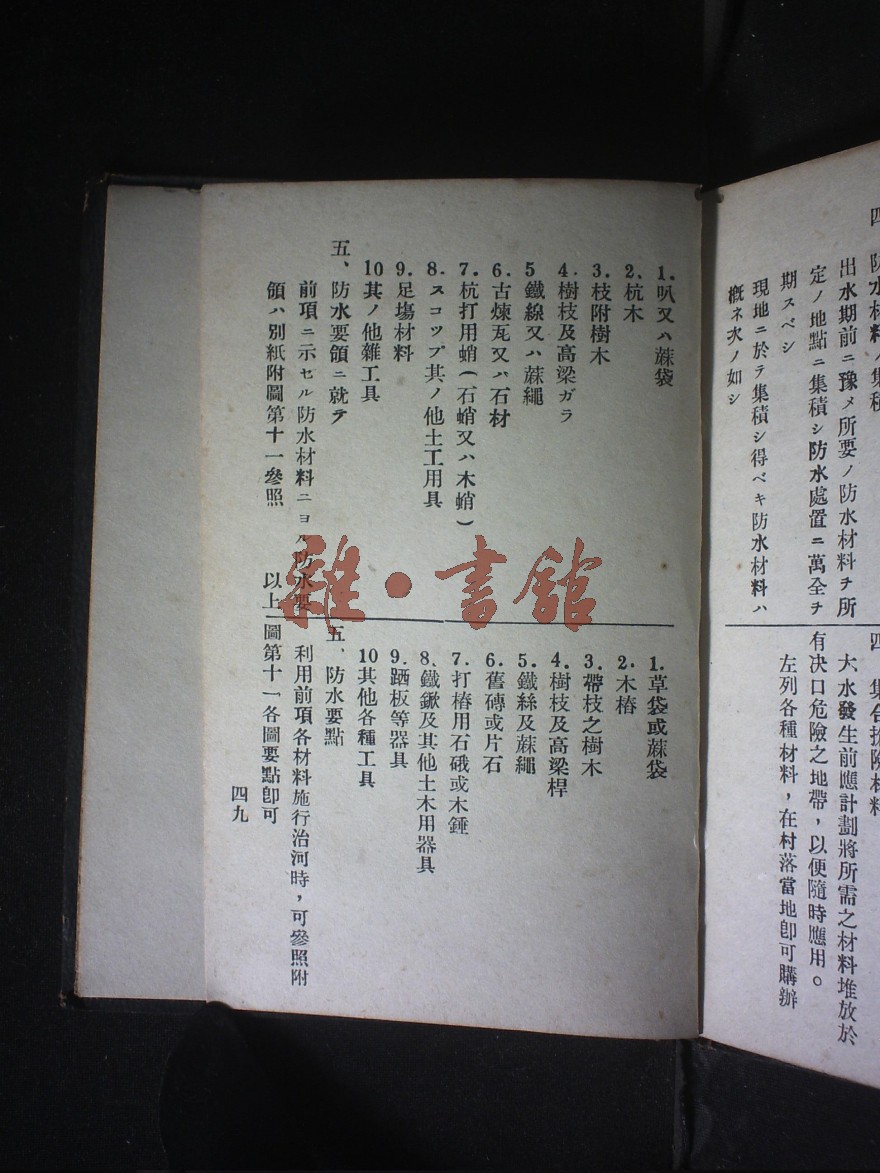 四 防水材料ノ集積
出水期前ニ豫メ所要ノ防水材料ヲ所
定ノ地點ニ集積シ防水處置ニ萬全ヲ
期スベシ
現地ニ於テ集積シ得ベキ防水材料ハ
概ネ次ノ如シ
四 集合搶險材料
大水發生前應計劃將所需之材料堆放於
有決口危險之地帶，以便隨時應用。
左列各種材料，在村落當地卽可購辦
1.叺又ハ蔴袋
2.杭木
3.枝附樹木
4.樹枝及高梁ガラ
5鐵線又ハ蔴繩
6.古煉瓦又ハ石材
7.杭打用蛸(石蛸又ハ木蛸)
8.スコップ其ノ他土工用具
9.足塲材料
10其ノ他雜工具
五、防水要領ニ就テ
前項ニ示セル防水材料ニヨル防水要
領ハ別紙附圖第十一參照
以上
1.草袋或蔴袋
2.木樁
3.帶枝之樹木
4.樹枝及高梁桿
5.鐵絲及蔴繩
6.舊磚或片石
7.打樁用石硪或木錘
8、鐵鍬及其他土木用器具
9.跴板等器具
10其他各種工具
五、防水要點
利用前項各材料施行治河時，可參照附
圖第十一各圖要點卽可
四九
雜·書館